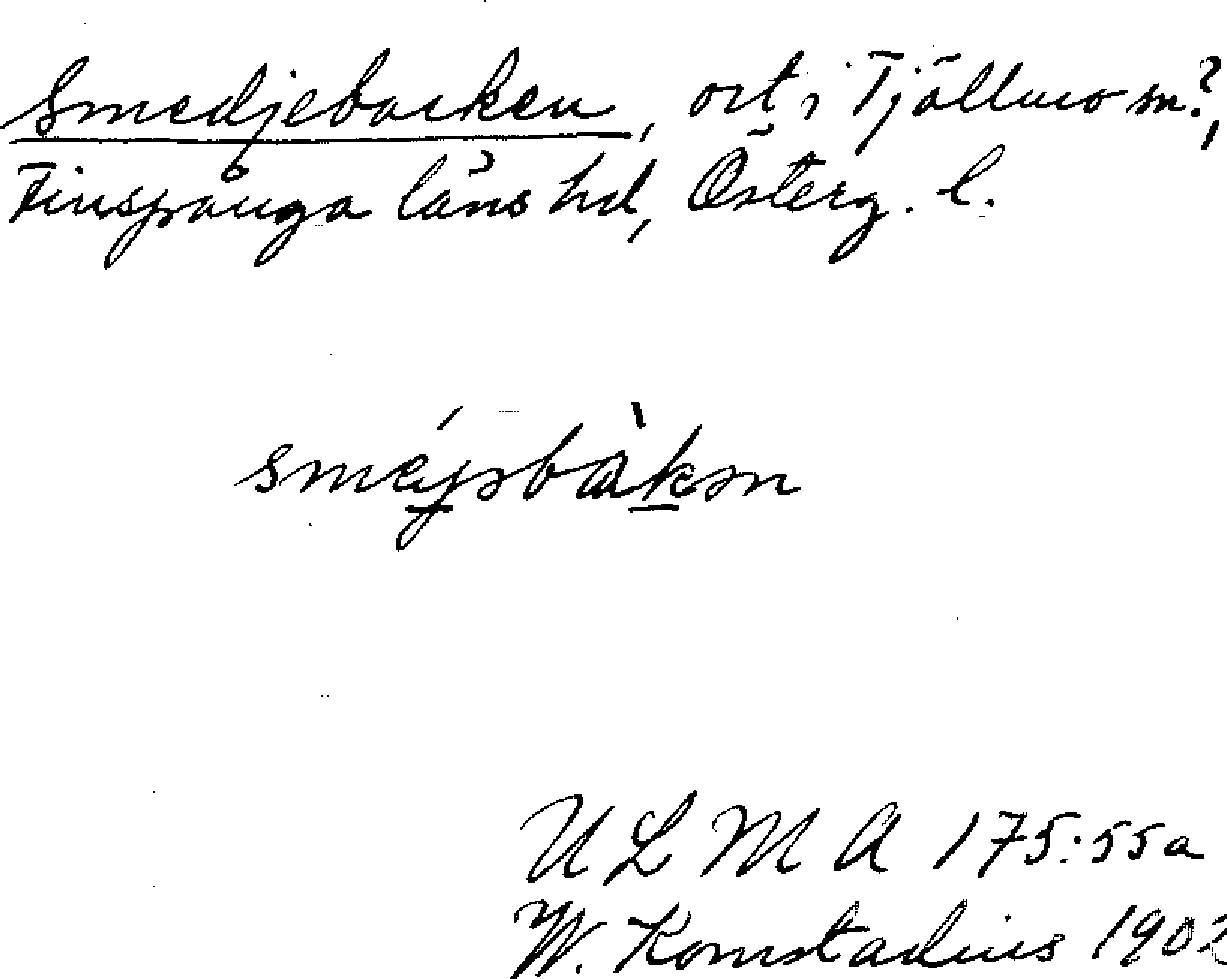 Smedjebacken, ort i Tjällmo sn?,
Finspånga läns hd, Österg. l.
sméjəbàkən
ULMA 175:55a
W. Komstadius 1902